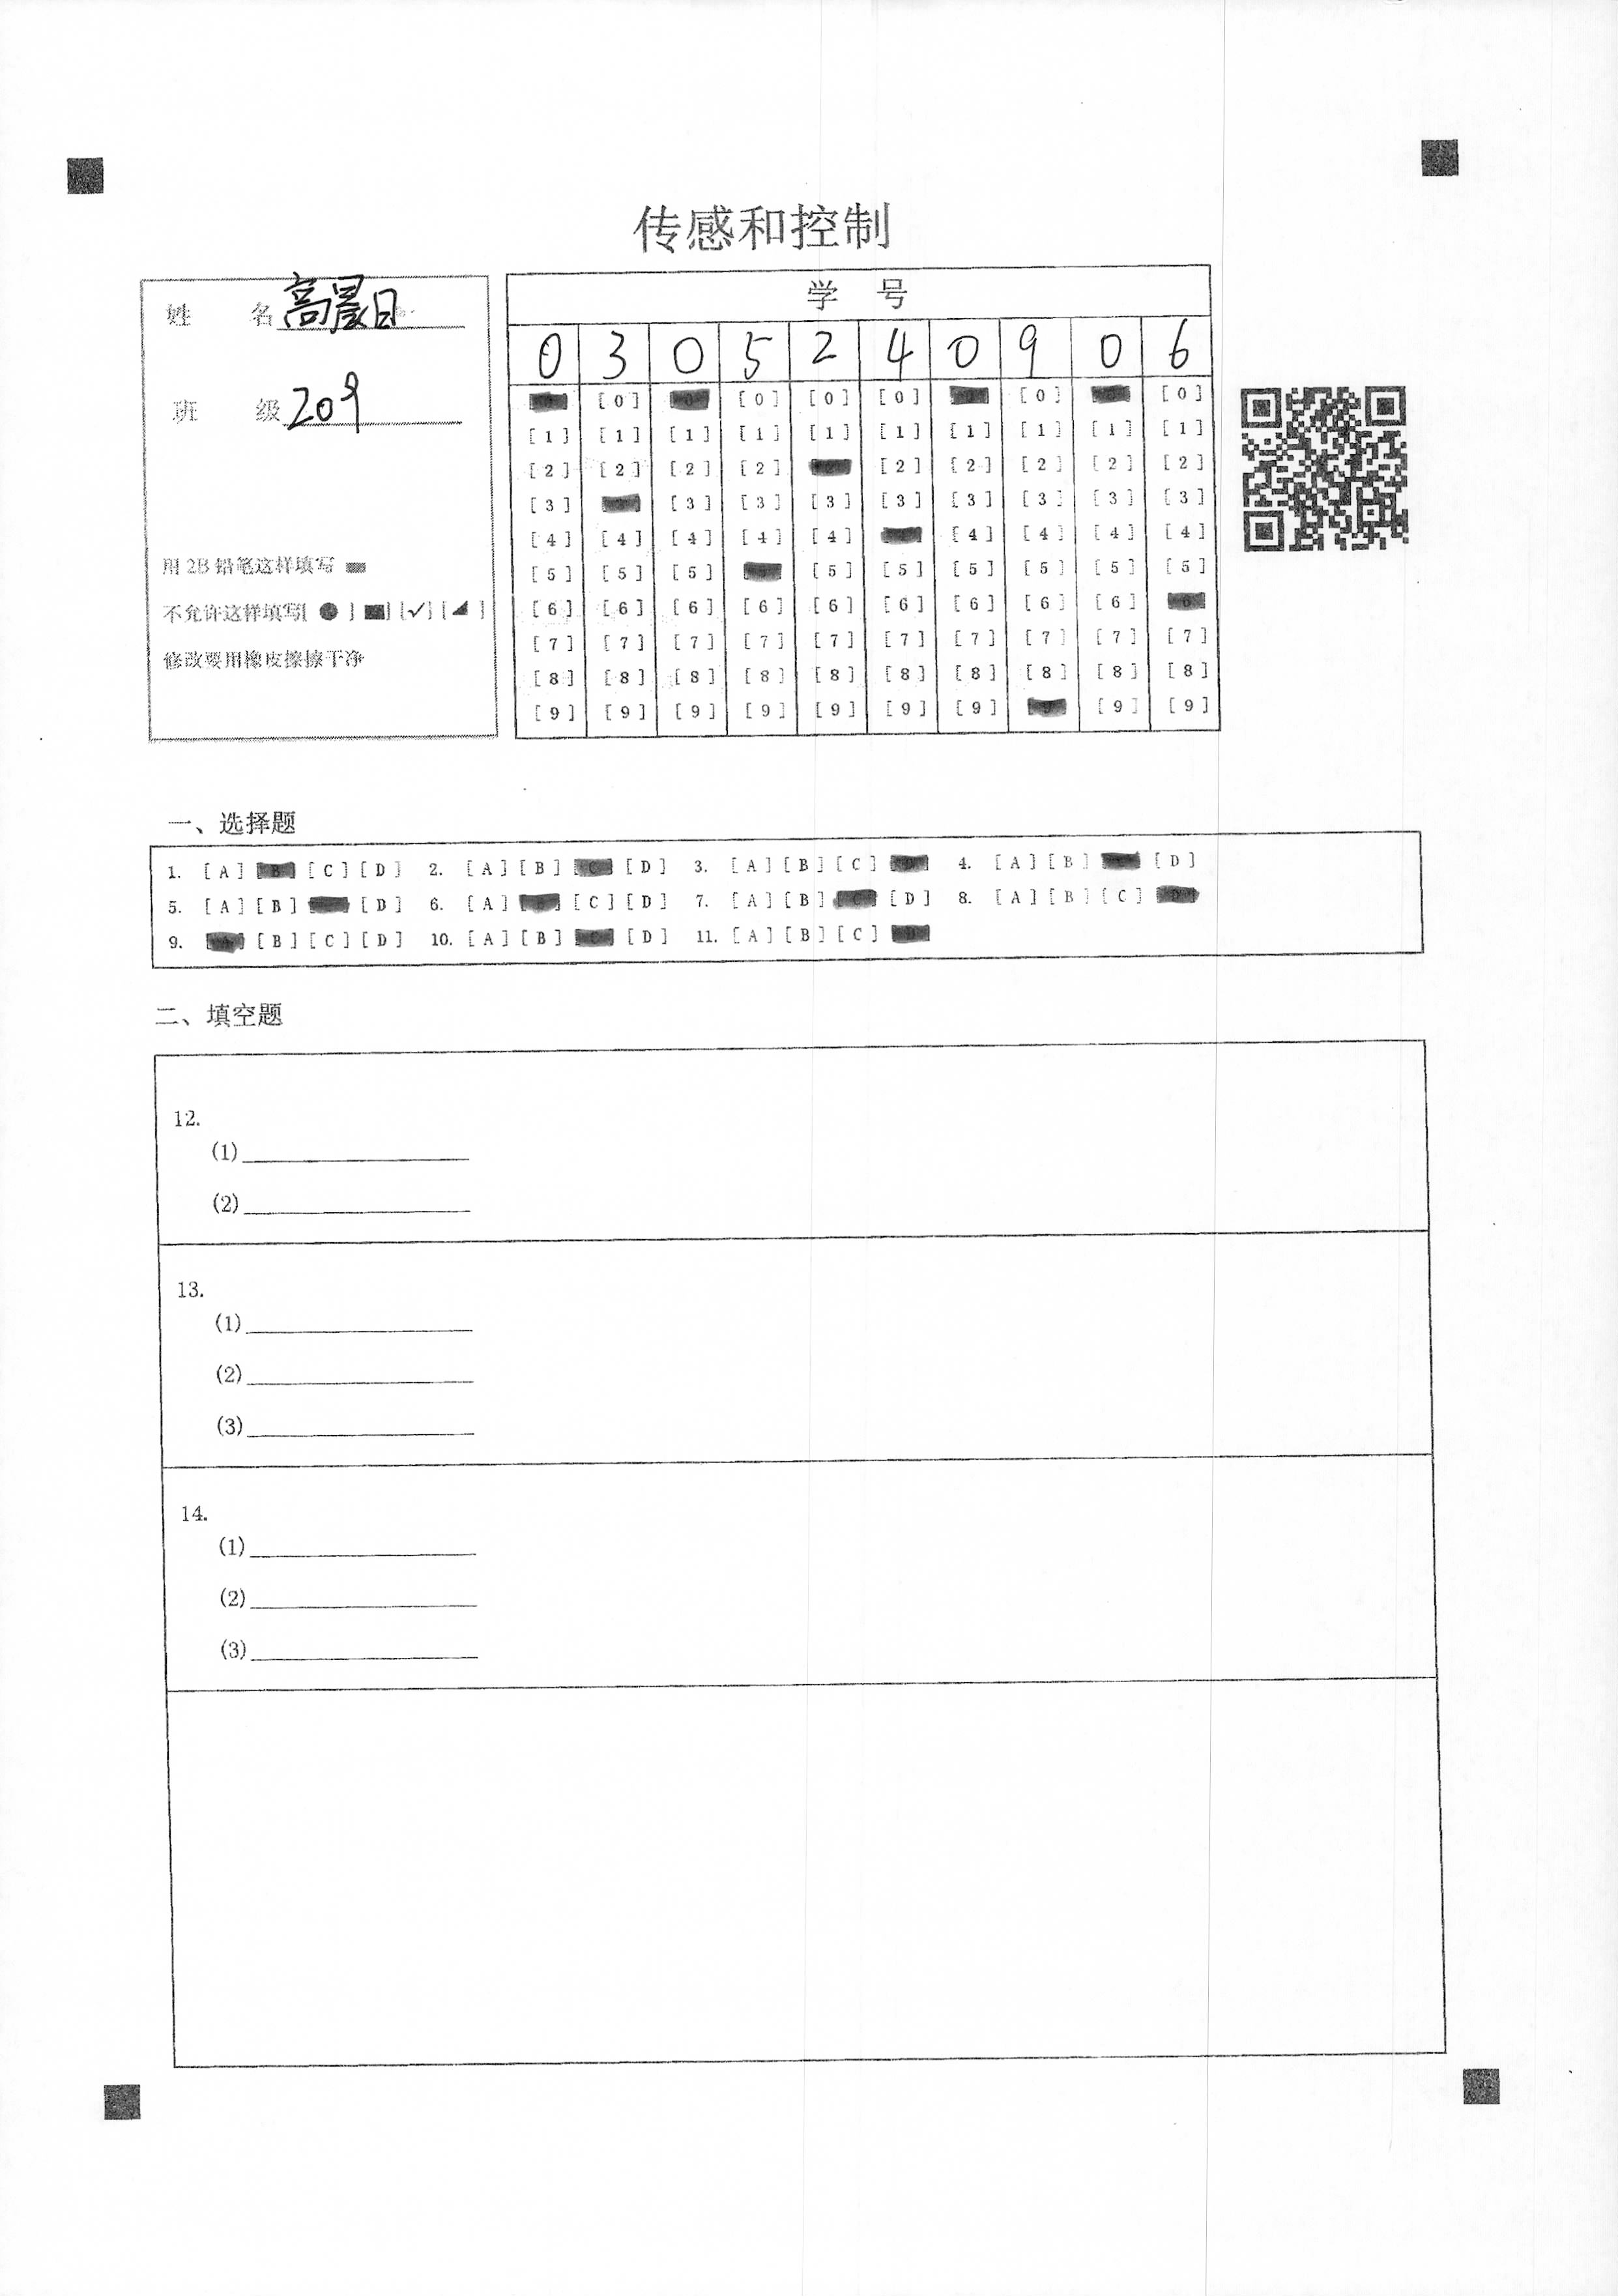 传感和控制
姓 名 高晨曰
班 级 209
用 2B 铅笔这样填写
不允许这样填写[ ● ] [■] [✓] [◢ ]
修改要用橡皮擦擦干净
学 号
0 3 0 5 2 4 0 9 0 6
[0] [0] [0] [0] [0] [0]
[1] [1] [1] [1] [1] [1] [1] [1] [1] [1]
[2] [2] [2] [2] [2] [2] [2] [2] [2]
[3] [3] [3] [3] [3] [3] [3] [3] [3]
[4] [4] [4] [4] [4] [4] [4] [4] [4]
[5] [5] [5] [5] [5] [5] [5] [5] [5]
[6] [6] [6] [6] [6] [6] [6] [6] [6]
[7] [7] [7] [7] [7] [7] [7] [7] [7] [7]
[8] [8] [8] [8] [8] [8] [8] [8] [8] [8]
[9] [9] [9] [9] [9] [9] [9] [9] [9] [9]
一、选择题
1. [A] [B] [C] [D] 2. [A] [B] [C] [D] 3. [A] [B] [C] [D] 4. [A] [B] [D]
5. [A] [B] [D] 6. [A] [B] [C] [D] 7. [A] [B] [C] [D] 8. [A] [B] [C] [D]
9. [A] [B] [C] [D] 10. [A] [B] [C] [D] 11. [A] [B] [C] [D]
二、填空题
12.
(1)
(2)
13.
(1)
(2)
(3)
14.
(1)
(2)
(3)